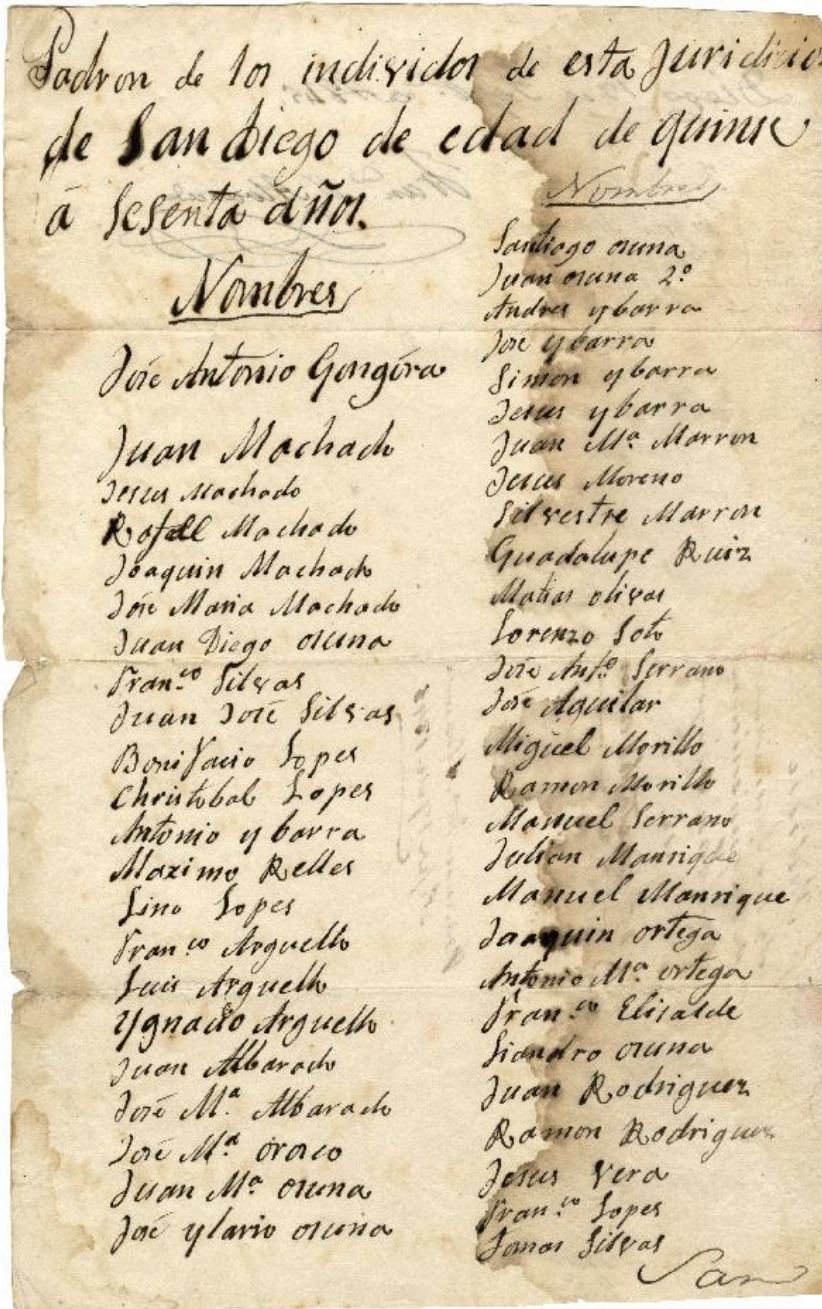 Padron de los individos de esta Juridicio
de San Diego de edad de quinse
á Sesenta años.
Nombres
José Antonio Gongóra
Juan Machado
Jesus Machado
Rafell Machado
Joaquin Machado
José Maria Machado
Juan Diego osuna
Fran.co Silvas
Juan José Silvas
Bonifacio Lopes
Christobal Lopes
Antonio ybarra
Maximo Relles
Lino Lopes
Fran.co Arguello
Luis Arguello
Ygnacio Arguello
Juan Albarado
José M.a Albarado
José M.a Orosco
Juan M.a osuna
José ylario osuna
Nombres
Santiago osuna
Juan osuna 2.o
Andres ybarra
José ybarra
Simon ybarra
Jesus ybarra
Juan M.a Marron
Jesus Moreno
Silvestre Marron
Guadalupe Ruiz
Matias olivas
Lorenzo Soto
José Ant.o Serrano
José Aguilar
Miguel Morillo
Ramon Morillo
Manuel Serrano
Julian Manrique
Manuel Manrique
Joaquin ortega
Antonio M.a ortega
Fran.co Elisalde
Liandro osuna
Juan Rodriguez
Ramon Rodriguez
Jesus Vera
Fran.co Lopes
Tomas Silvas
San